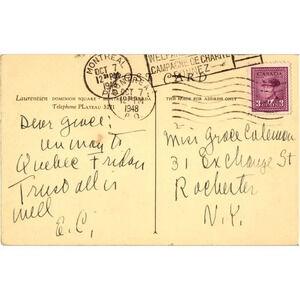 MONTREAL
OCT 7
1948
WELFARE
CAMPAGNE DE CHARITÉ
DONNEZ
POST CARD
CANADA
3 3
OCT 7
1948
Laurentien DOMINION SQUARE
Telephone PLATEAU
THIS SIDE FOR ADDRESS ONLY
Dear Grace:
on way to
Quebec Friday
Trust all is
well
E.C.
Miss Grace Coleman
31 Exchange St
Rochester
N.Y.